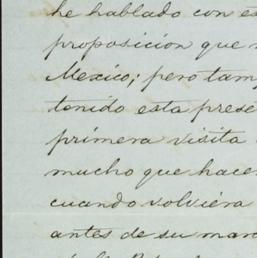 he hablado con es
proposicion que
Mexico; pero tam
tenido esta prese
primera visita
mucho que hacer
cuando volviéra
antes de su mar